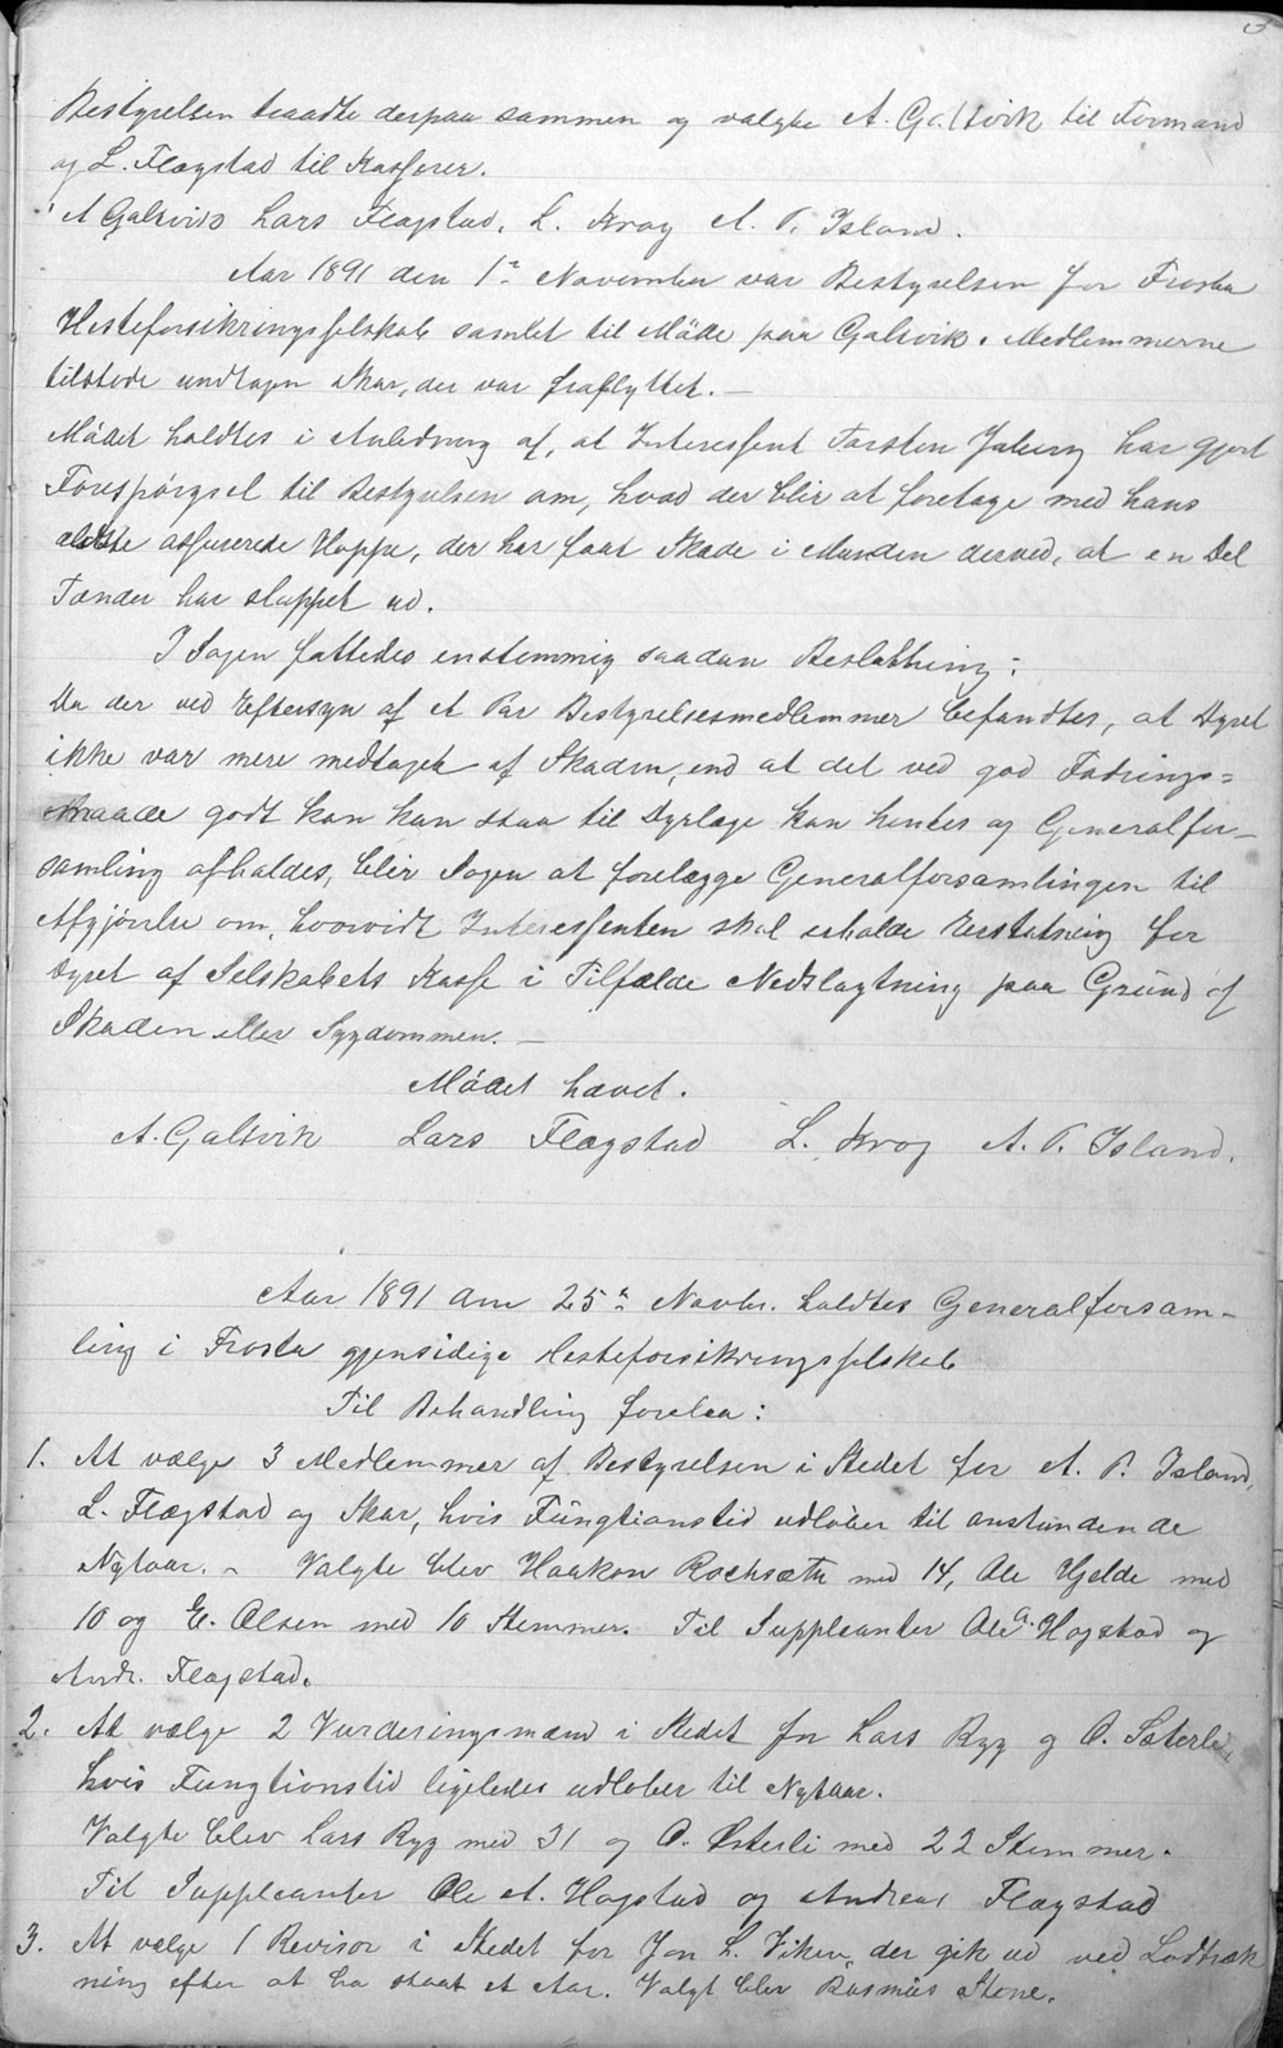 Bestyrelsen traadte derpaa sammen og valgte A. Galtvik til Formand
og L. Flægstad til Kasserer.
A Galtvik Lars Flægstad, L. Krog A. P. Island.
Aar 1891 den 1ste November var Bestyrelsen for Frosta
Hesteforsikringsselskab samlet til Møde paa Galtvik. Medlemmerne
tilstede undtagen Skar, der var fraflyttet. —
Mødet holdtes i Anledning af, at Interessent Torsten Juberg har gjort
Forespørgsel til Bestyrelsen om, hvad der blir at foretage med hans
ældste assurerede Hoppe, der har faat Skade i Munden derved, at en Del
Tænder har sluppet ud.
I Sagen fattedes enstemmig saadan Beslutning:
Da der ved Eftersyn af et Par Bestyrelsesmedlemmer befandtes, at Dyret
ikke var mere medtaget af Skaden, end at det ved god Fodrings=
maade godt kan kan staa til Dyrlæge kan hentes og Generalfor-
samling afholdes, blir Sagen at forelægge Generalforsamlingen til
Afgjørelse om, hvorvidt Interessenten skal erholde Erstatning for
Dyret af Selskabets Kasse i Tilfælde Nedslagtning paa Grund af
Skaden eller Sygdommen. —
Mødet hævet.
A. Galtvik Lars Flægstad L. Krog A. P. Island.
Aar 1891 den 25de Novbr. holdtes Generalforsam-
ling i Frosta gjensidige Hesteforsikringsselskab
Til Behandling forelaa:
1. At vælge 3 Medlemmer af Bestyrelsen i Stedet for A. P. Island,
L. Flægstad og Skar, hvis Fungtionstid udløber til anstundende
Nytaar. - Valgte blev Haakon Rochsæth med 14, Ole Hjelde med
10 og E. Olsen med 10 Stemmer. Til Suppleanter Ole A. Hogstad og
Andr. Flægstad.
2. At vælge 2 Vurderingsmænd i Stedet for Lars Ryg og O. Østerli,
hvis Fungtionstid ligeledes udløber til Nytaar.
Valgte blev Lars Ryg med 31 og O. Østerli med 22 Stemmer.
Til Suppleanter Ole A. Hogstad og Andreas Flægstad
3. At vælge 1 Revisor i Stedet for Jon L. Viken, der gik ud ved Lodtræk
ning efter at ha staat et Aar. Valgt blev Rasmus Stene.